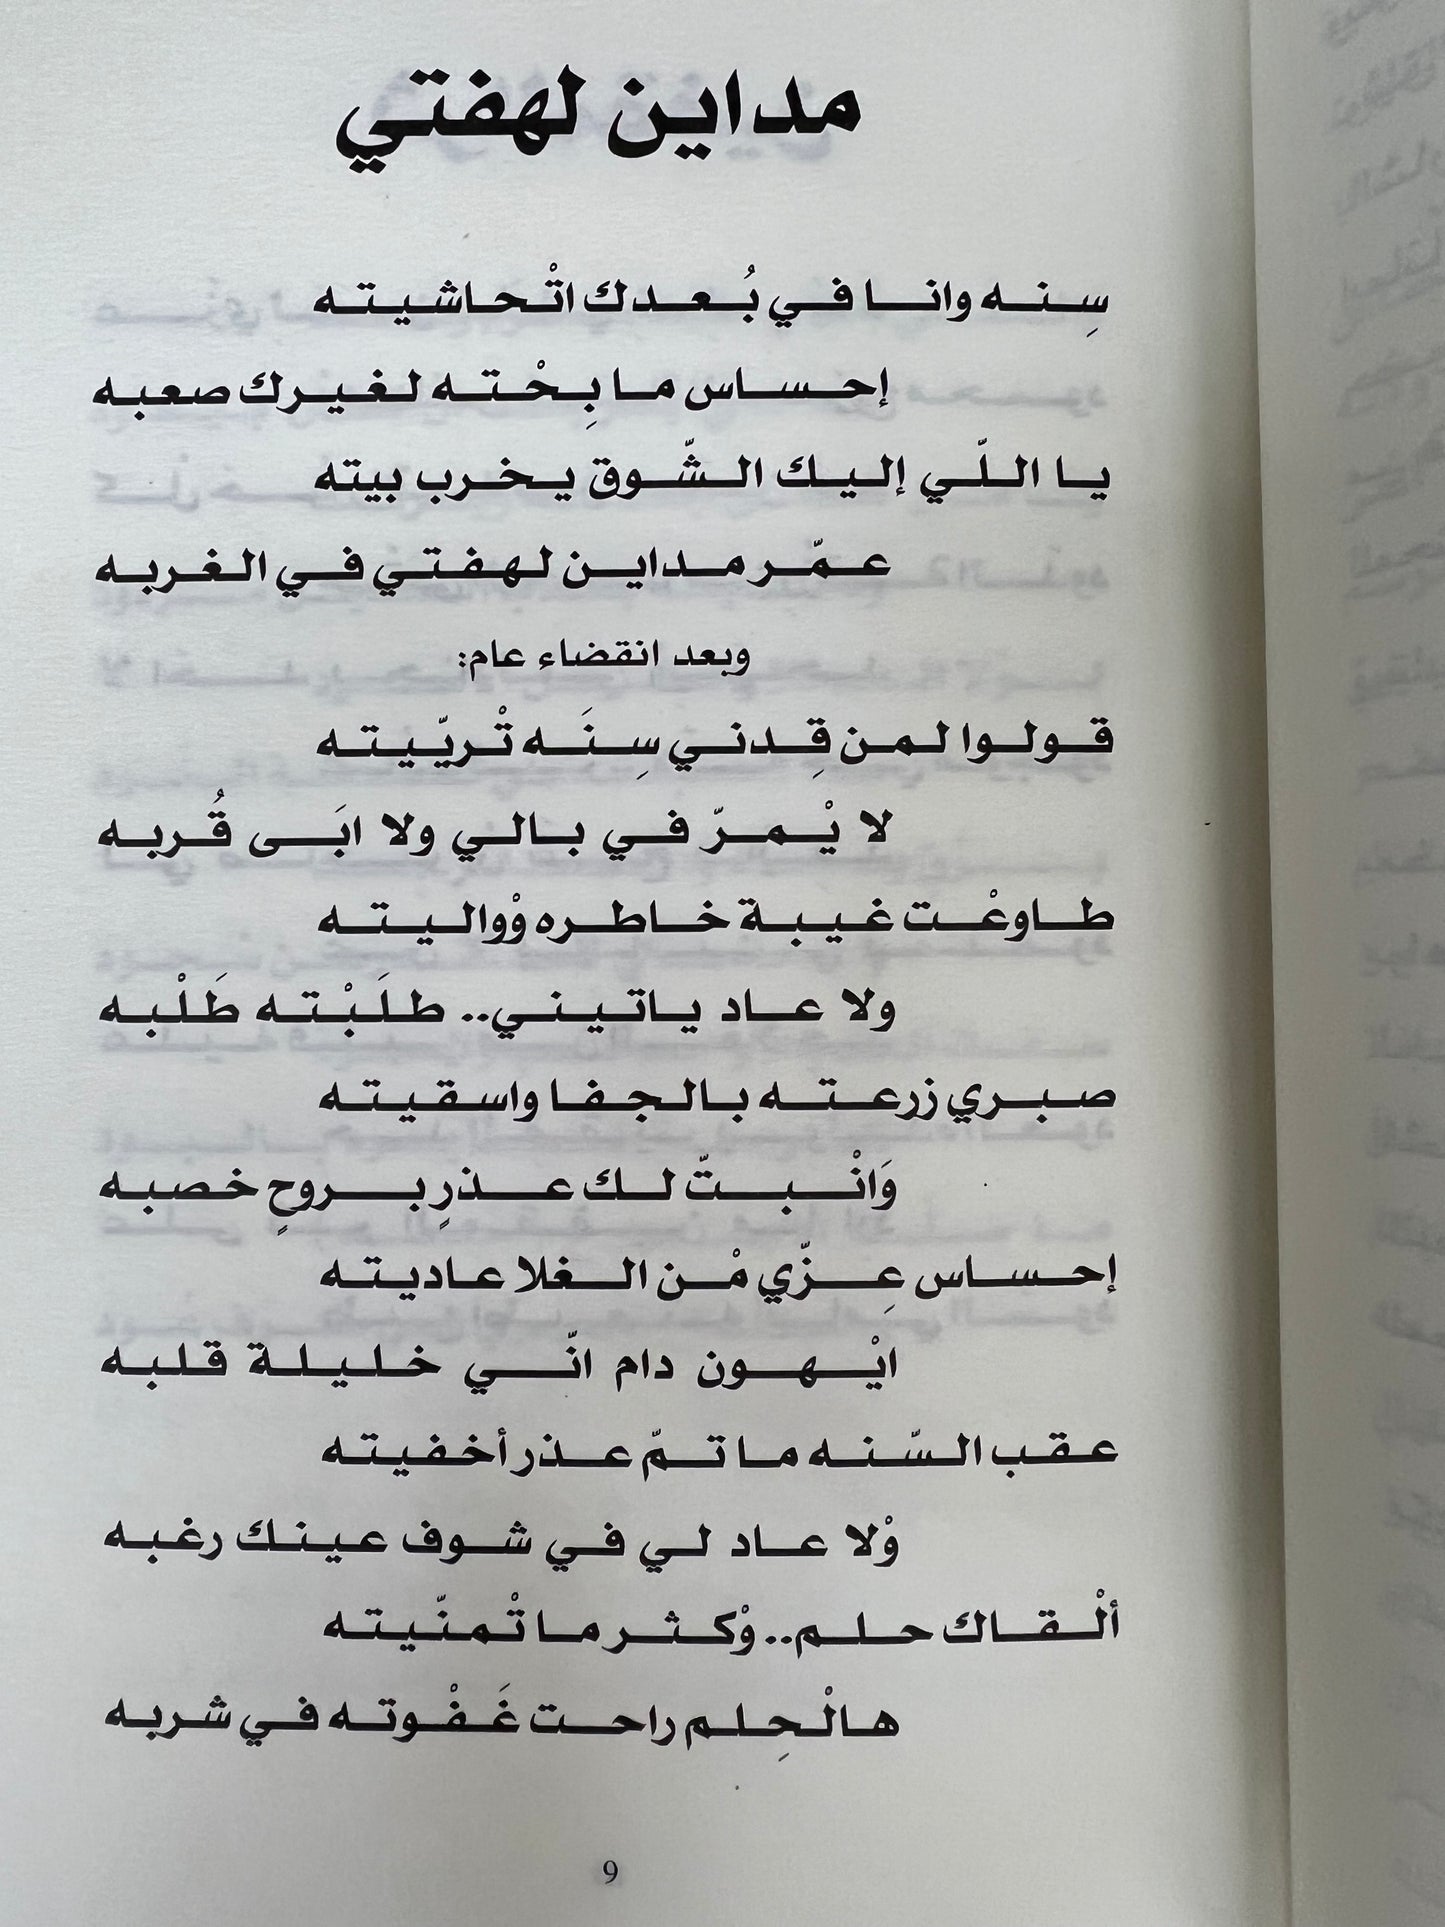 مداين لهفتي
سِنه وانا في بُعدك اتْحاشيته
إحساس ما بِحْته لغيرك صعبه
يا اللّي إليك الشّوق يخرب بيته
عمّر مداين لهفتي في الغربه
وبعد انقضاء عام:
قولوا لمن قِدني سِنَه تْريّيته
لا يْمرّ في بالي ولا ابَى قُربه
طاوعْت غيبة خاطره وْواليته
ولا عاد ياتيني.. طلَبْته طَلْبه
صبري زرعته بالجفا واسقيته
وَانْبتّ لك عذرٍ بروحٍ خصبه
إحساس عِزّي مْن الغلا عاديته
ايْهون دام انّي خليلة قلبه
عقب السّنه ما تمّ عذر أخفيته
وْلا عاد لي في شوف عينك رغبه
ألْقاك حلم.. وْكثر ما تْمنّيته
هالْحِلم راحت غَفْوته في شربه
9